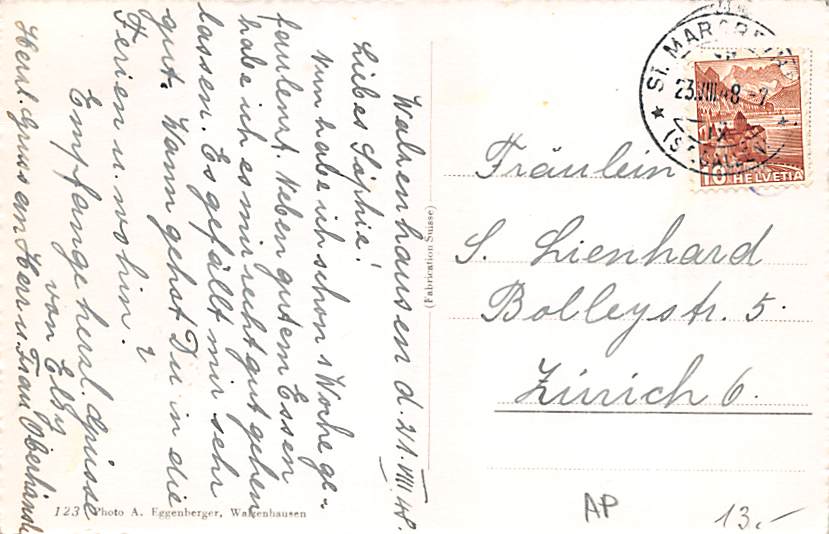 Walzenhausen d. 21.VIII.48.
Liebes Sophie!
Nun habe ich schon 1 Woche ge-
faulenzt. Neben gutem Essen
habe ich es mir recht gut gehen
lassen. Es gefällt mir sehr
gut. Wann gehst Du in die
Ferien u. wohin?
Empfange herzl. Grüsse
von Elsy
Herzl. Gruss an Herr u. Frau
123 Photo A. Eggenberger, Walzenhausen
(Fabrication Suisse)
ST. MARGRETHEN
23.VIII.48
(ST. GALLEN)
10 HELVETIA
Fräulein
S. Lienhard
Bolleystr. 5.
Zürich 6.
AP
13.-